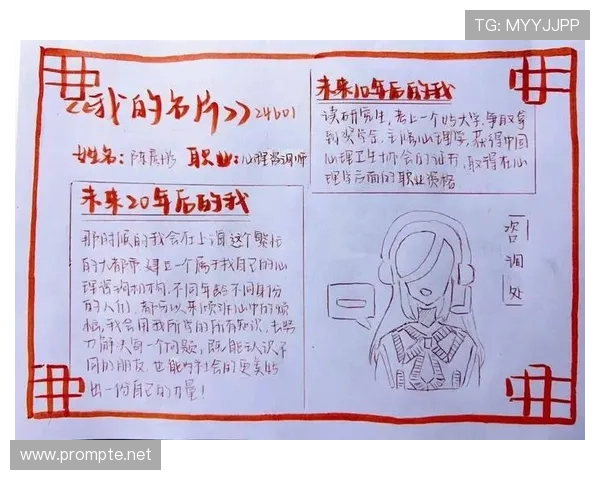 TG: MYYJJPP
<<我的名片>> 24601
姓名: 陈 职业: 心理咨询师
未来10年后的我
读研究生，考上一个好大学，争取拿
到奖学金，主修心理学，获得中国
心理卫生协会的证书，取得在心
理学方面的职业资格
未来20年后的我
那时候的我会在上海这个繁忙
的大都市建立一个属于我自己的心
理咨询机构，不同年龄不同身份
的人们，都可以来倾诉心中的烦
恼，我会用我所学的所有知识，去努
力解决每一个问题，既能认识不
同的朋友，也能为社会的更美好
出一份自己的力量！
咨询处
www.prompte.net